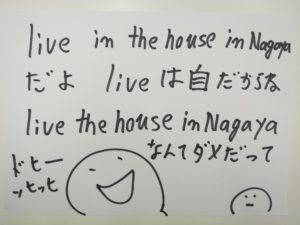 live in the house in Nagaya
だよ liveは自だからな
live the house in Nagaya
なんてダメだって
ドヒー
ッヒッヒ